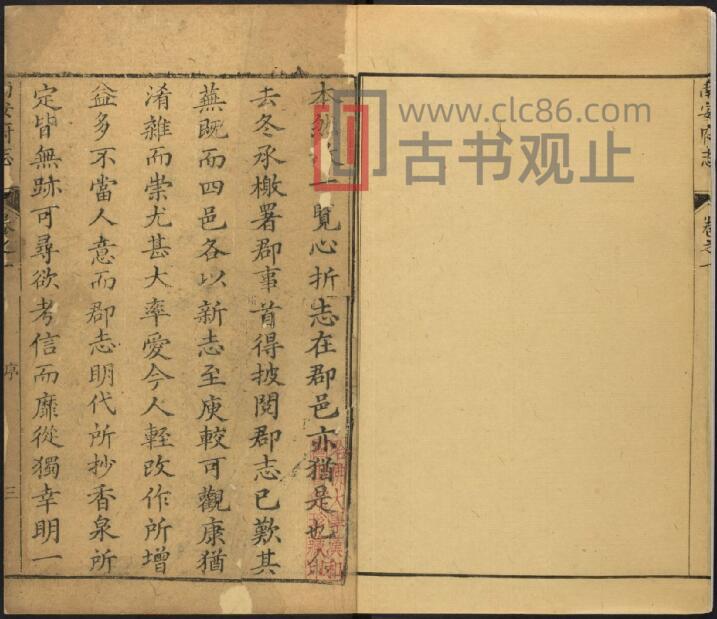 www.clc86.com
古书观止
南安府志
卷之一
本然一覽心折志在郡邑亦猶是也
去冬承檄署郡事首得披閱郡志已歎其
蕪既而四邑各以新志至庾較可觀康猶
淆雜而崇尤甚大率愛今人輕改作所增
益多不當人意而郡志明代所抄香泉所
定皆無跡可尋欲考信而靡從獨幸明一
序
三